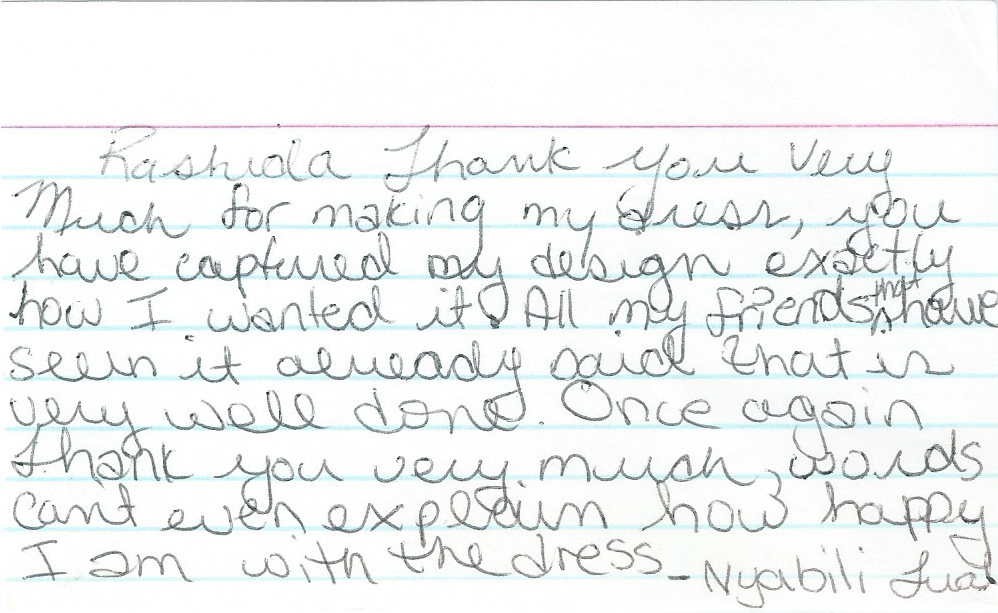 Rashida Thank you Very
Much for making my dress, you
have captured my design exactly
how I wanted it. All my friends that have
seen it already said that is
very well done. Once again
thank you very much, words
can't even explain how happy
I am with the dress - Nyabili